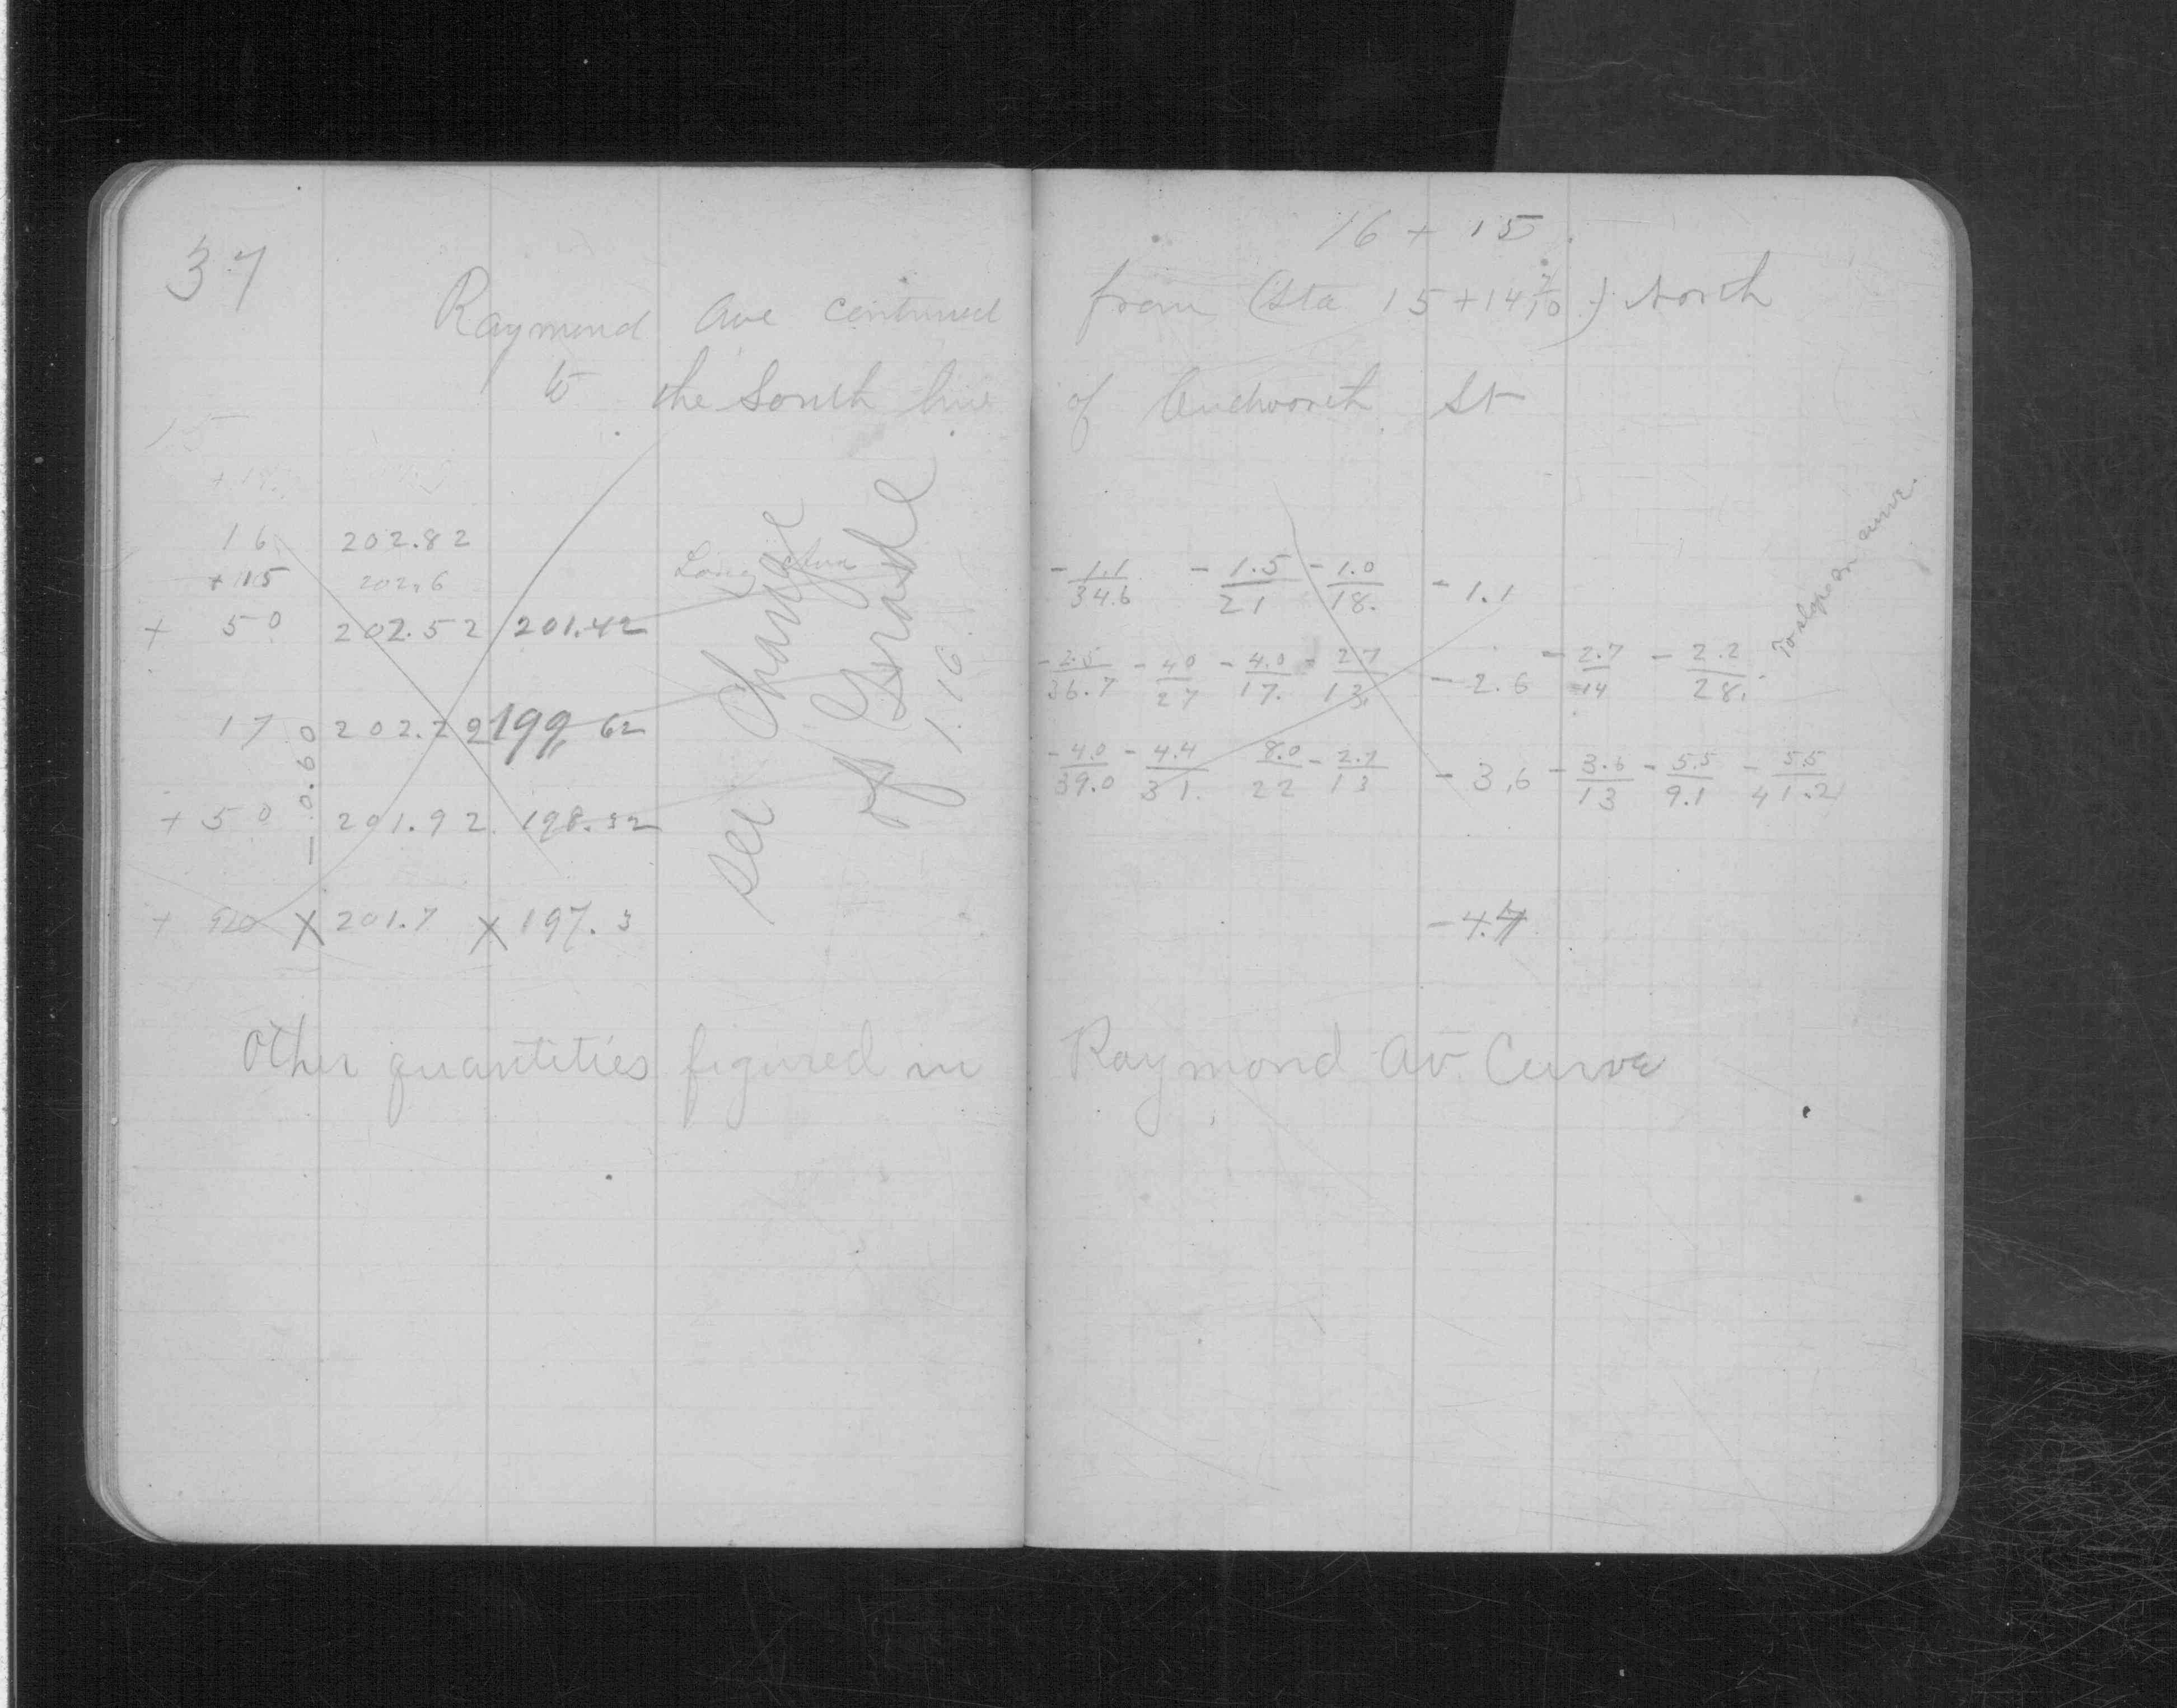 37
16 + 15
Raymond Ave continued from (Sta 15+14 7/10) North
to the South line of Audworth St
15
16 202.82
+ 15 202.6
+ 50 202.52 201.42 - 1.1/34.6 - 1.5/21 - 1.0/18. - 1.1
17 202.22 199.62 - 2.5/36.7 - 4.0/27 - 4.0/17. - 2.7/13. - 2.6 - 2.7/14 - 2.2/28. To slope on curve.
- 0.60
+ 50 201.92 198.32 - 4.0/39.0 - 4.4/31. 8.0/22 - 2.7/13 - 3.6 - 3.6/13 - 5.5/9.1 - 5.5/41.2
+ 90 X 201.7 X 197.3 - 4.4
See Change
of Grade
1.16
Other quantities figured in Raymond Av Curve